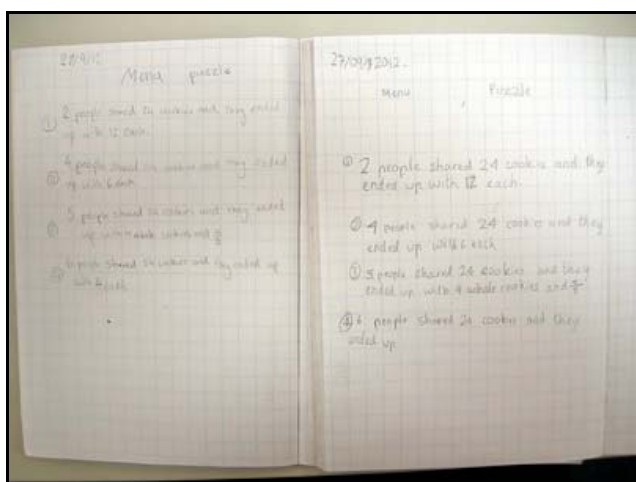 Menu puzzle
① 2 people shared 24 cookies and they ended
up with 12 each.
② 4 people shared 24 cookies and they ended
up with 6 each
③ 5 people shared 24 cookies and they ended
up with whole cookies and
④ 6 people shared 24 cookies and they ended up
with 4 each
27/09/2012.
Menu Puzzle
① 2 people shared 24 cookies and they
ended up with 12 each.
② 4 people shared 24 cookies and they
ended up with 6 each
③ 5 people shared 24 cookies and they
ended up with 4 whole cookies and
④ 6 people shared 24 cookies and they
ended up